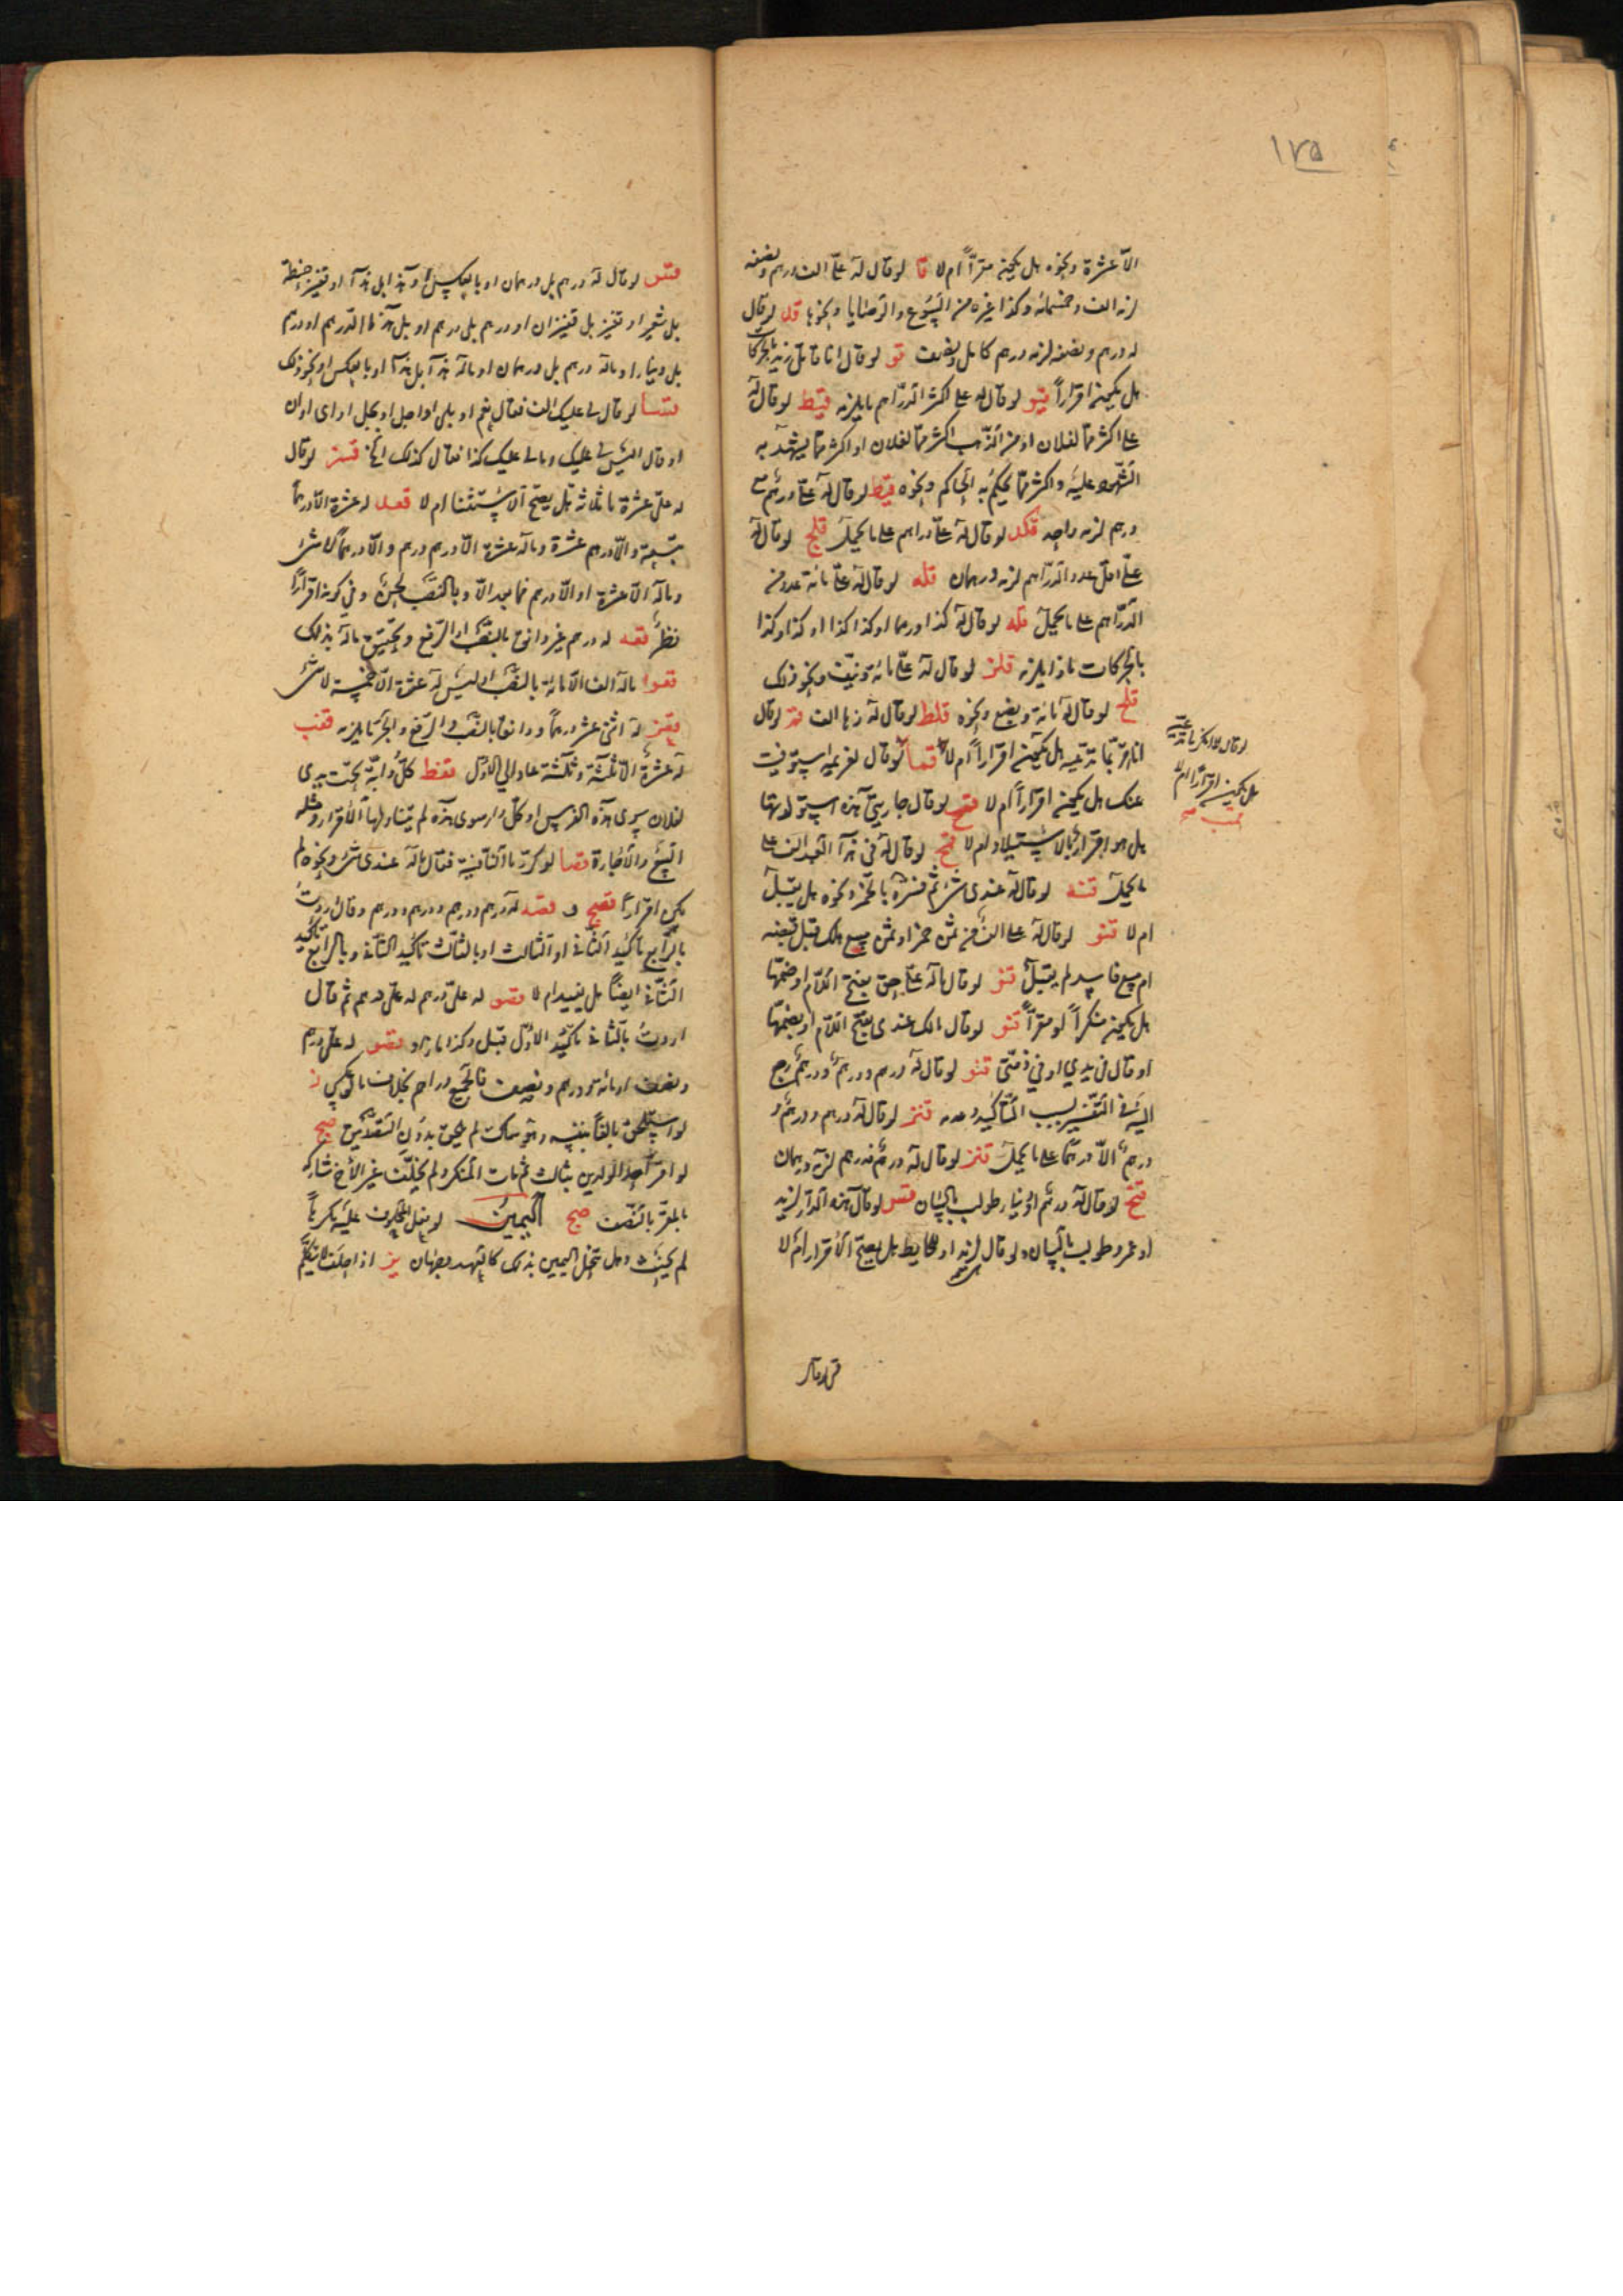 ١٧٥
الّا عشرة ونحوه هل يكون مقرّاً ام لا قا لو قال له علىّ الف درهم ونصفه
لزمه الف وخمسمائة وكذا غيره من البيوع والوصايا ونحوها قد لو قال
له درهم ونصفه لزمه درهم كامل ونصف قو لو قال انا قاتل زيد بالحركات
هل يكون اقراراً قيو لو قال له علىّ اكثر الدّراهم ما يلزمه قيط لو قال له
علىّ اكثر ممّا لفلان او من الذّهب اكثر ممّا لفلان او اكثر ممّا يشهد به
الشّهود عليه واكثر ممّا يحكم به الحاكم ونحوه قيط لو قال له علىّ درهم مع
درهم لزمه واحد قكد لو قال له علىّ دراهم على ما يحمل قلج لو قال له
علىّ اقلّ عدد الدّراهم لزمه درهمان قله لو قال له علىّ مائة عدد من
الدّراهم على ما يحمل قله لو قال له كذا درهما او كذا كذا او كذا وكذا
بالحركات ماذا يلزمه قلز لو قال له علىّ مائة ونيّف ونحو ذلك
قلح لو قال له مائة وبضع ونحوه قلط لو قال له زها الف قم لو قال
انا مقرّ بما تدّعيه هل يكون اقراراً ام لا قما لو قال لغريمه استوفيت
لو قال لا انكر ما تدّعيه
هل يكون اقراراً ام لا
قمب صح
منك هل يكون اقراراً ام لا قمح لو قال جاريتى هذه استولدتها
هل هو اقرار بالاستيلاد ام لا قمح لو قال له فى هذا العبد الف على
ما يحمل قنه لو قال له عندى شىء ثم فسّره بالخمر ونحوه هل يقبل
ام لا قنو لو قال له علىّ الف من ثمن خمر او ثمن مبيع هلك قبل قبضه
ام بيع فاسد لم يقبل قنو لو قال ما له علىّ حق بفتح اللّام او ضمّها
هل يكون منكراً او مقرّاً قنو لو قال مالك عندى بفتح اللّام او بضمّها
او قال فى يدي او في ذمّتى قنو لو قال له درهم ودرهم ودرهم رجع
اليه فى التّفسير بسبب التّأكيد وعدمه قنز لو قال له درهم ودرهم و
درهم الّا درهماً على ما يحمل قنز لو قال له درهم فدرهم لزمه درهمان
قنح لو قال له درهم او دينار طولب بالبيان قنس لو قال هذه الدّار لزيد
او عمرو طولب بالبيان ولو قال لزيد او للحايط هل يصحّ الاقرار ام لا
قس لو قال
قس لو قال له درهم بل درهمان او بالعكس او هذا بل هذا او قفيز حنطة
بل شعير او قفيز بل قفيزان او درهم بل درهم او بل هذا الدّرهم او درهم
بل دينار او ماله درهم بل درهمان او ماله هذا بل هذا او بالعكس او نحو ذلك
قسا لو قال لى عليك الف فقال نعم او بلى او اجل او بجل او اى او ان
او قال اليس لى عليك ومالى عليك كذا فقال كذلك الخ قسز لو قال
له علىّ عشرة ما ثلاثة هل يصحّ الاستثنا ام لا قعد له عشرة الّا درهماً
تسعة والّا درهم عشرة وماله عشرة الّا درهم درهم والّا درهماً لا شىء
وماله الّا عشرة او الّا درهم فما بعد الّا وبالنّصب لحن وفي كونه اقراراً
نظر قعه له درهم غير دانق بالنّصب او الرّفع وتحقيق ماله بذلك
قعو ماله الف الّا مائة بالنّصب او ليس له عشرة الّا خمسة لا شىء
قعز له اثنى عشر درهماً ودانقا بالنّصب والرّفع والجرّ ما يلزمه قعب
له عشرة الّا ثلثة وثلثة عاد الي الاوّل قعط كلّ دابّة تحت يدى
لفلان سوى هذه الفرس او كلّ دار سوى هذه لم يتناولها الاقرار ومثله
البيع والاجارة قصا لو كرّر ما النّافية فقال ما له عندى شىء ونحوه لم
يكن اقراراً قصج و قصه له درهم ودرهم ودرهم ودرهم وقال اردت
بالرّابع تأكيد الثّانى او الثالث او بالثّالث تأكيد الثّانى وبالرّابع تأكيد
الثّانى ايضاً هل يفيد ام لا قصو له علىّ درهم له علىّ درهم ثم قال
اردت بالثّانى تأكيد الاوّل قبل وكذا ما زاد قصو له علىّ درهم
ونصف او مائة ودرهم ونصف فالجميع دراهم بخلاف ما لو عكس ز
لو استلحق بالغاً بنفسه وهو ساكت لم يلحق بدون التّصديق صح
لو اقرّ احد الولدين بثالث ثم مات المنكر ولم يخلّف غير الاخ شاركه
بالمقرّ بالنّصف صح اليمين لو فعل المحلوف عليه مكرهاً
لم يحنث وهل تنحل اليمين بذلك كالتّعمد وجهان يز اذا حلف لا يتكلّم